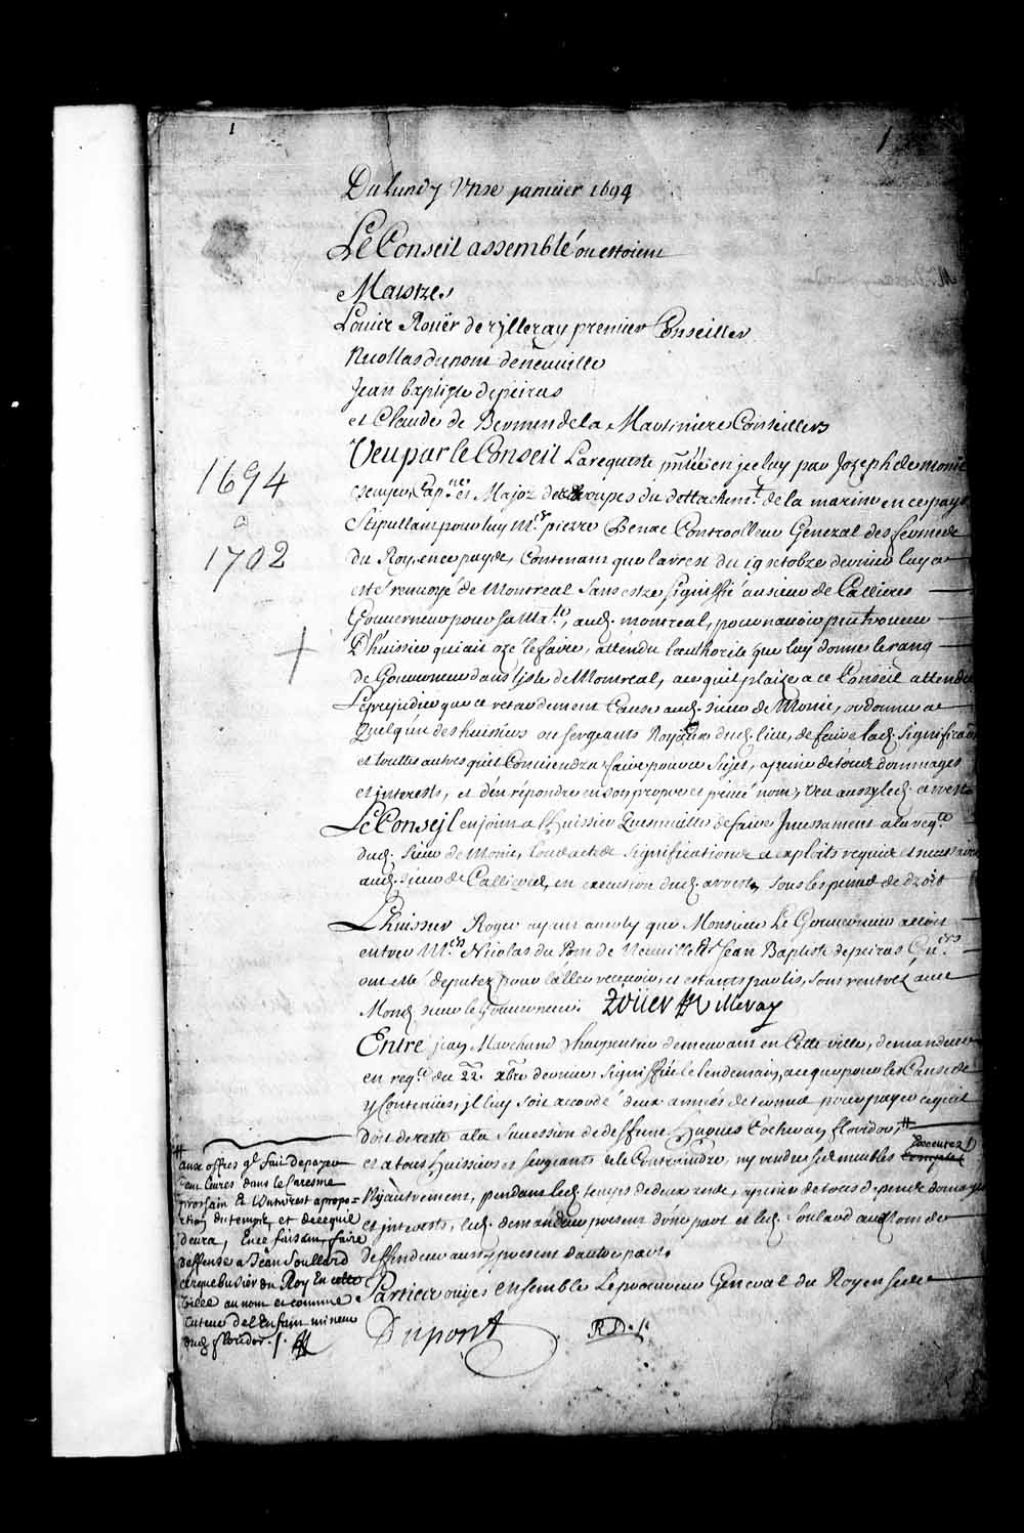 1
1
Du lundy Unze janvier 1694
Le Conseil assemblé ou estoient
Maistres
Louis Roüer de villeray premier Conseiller
Nicollas dupont deneuuille
Jean baptiste depeiras
et Claude de Bermen de la Martiniere Conseillers
Veu par le Conseil La requeste p̃ntée en jceluy par Jozeph de monic
escuyer, Cap.ne et Major des troupes du destachem.t de la marine en ce pays
Stipullant pour luy M.e pierre Benac Controolleur General des fermes
du Roy, en ce pays, Contenant que l'arrest du 19 octobre dernier luy a
esté renuoyé de Montreal sans estre signiffié au sieur de Callieres
Gouuerneur pour sa Ma.té, aud. montreal, pour n'auoir peu trouuer
D'huissier qui ait ozé le faire, attendu l'authorité que luy donne le rang
de Gouuerneur dans l'jsle de Montreal, a ce qu'il plaize a ce Conseil attendu
Le prejudice que ce retardement Cause aud. sieur de Monic, ordonner a
Quelqu'un des huissiers ou sergeants Royaux dud. lieu, de faire lad. signification
et touttes autres qu'il Conuiendra faire pour ce sujet, a peine de tous dommages
et interests, et d'en répondre en son propre et priué nom, Veu aussy led. arrest
Le Conseil enjoint a l'huissier Quesneuille de faire Jncessament a la req.te
dud. sieur de Monic, tous actes de signification et exploits requis et necessaires
aud. sieur de Callieres, en execution dud. arrest, sous les peines de droit
L'huissier Roger ayant auerty que Monsieur Le Gouuerneur alloit
entrer M.es Nicolas du Pont de Neuuille et Jean Baptiste depeiras Con.ers
ont esté deputez pour l'aller receuoir, et estants partis, sont rentrez auec
Mond. sieur le gouuerneur. Roüer de Villeray
Entre jean Marchand Charpentier demeurant en Cette ville, demandeur
en req.te du 22. xbre dernier, signiffiée le lendemain, a ce que pour les Causes
y Contenües, jl luy soit accordé deux années de terme pour payer ce qu'il
doit de reste a la succession de deffunt Jaques Cochivay floridor,
et a tous huissiers et sergeants de le Contraindre, ny vendre ses meubles
Executez
Ny autrement, pendant led. temps de deux ans, a peine de tous depens dommages
et jnterests, led. demandeur present d'une part et led. Soulard aud. nom de
deffendeur aussy present d'autre part.
Parties ouyes ensemble Le procureur General du Roy en ses
Dupont
R D. f.
1694
a
1702
aux offres q.l fait de payer
cent liures dans le Caresme
prochain Et L'interest a propo-
rtion du temps, et de ce qu'il
deura, En ce faisant, faire
deffense a Jean Soullard
arquebusier du Roy En cette
ville au nom et comme
tuteur de l'Enfant mineur
dud. floridor. f.